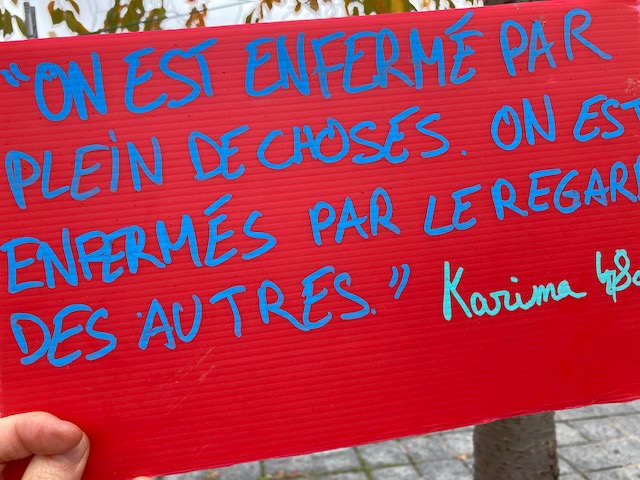 "ON EST ENFERMÉ PAR
PLEIN DE CHOSES. ON EST
ENFERMÉS PAR LE REGARD
DES AUTRES." Karima